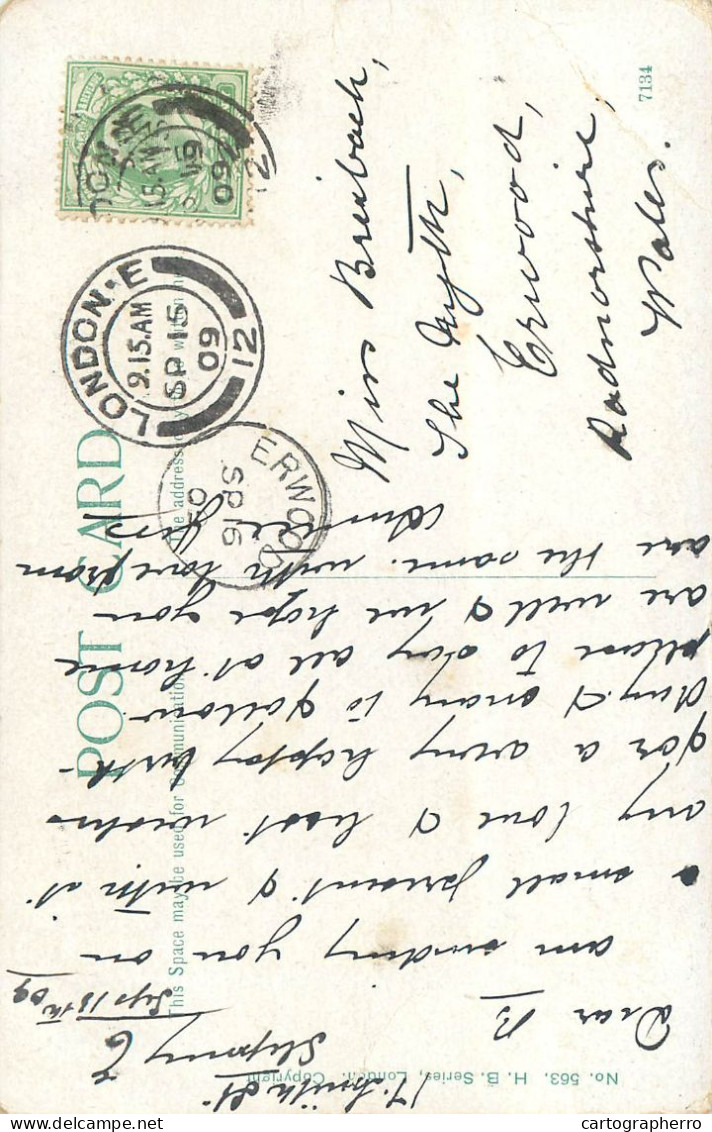 POST CARD
This Space may be used for Communication.
The address only to be written here
7134
LONDON. E
9.15 AM
SP 15
09
12
ERWOOD
SP 16
09
Miss Breibach,
The Wyth,
Erwood,
Radnorshire,
Wales.
17 Smith St
Stepney E
Sep 15th 09
Dear B
am sending you on
a small present & with it
my love & best wishes
for a very happy birth-
day. & many to follow
please to say all at home
are well & we hope you
are the same. with love from
No. 563. H. B. Series, London. Copyright
cartographerro